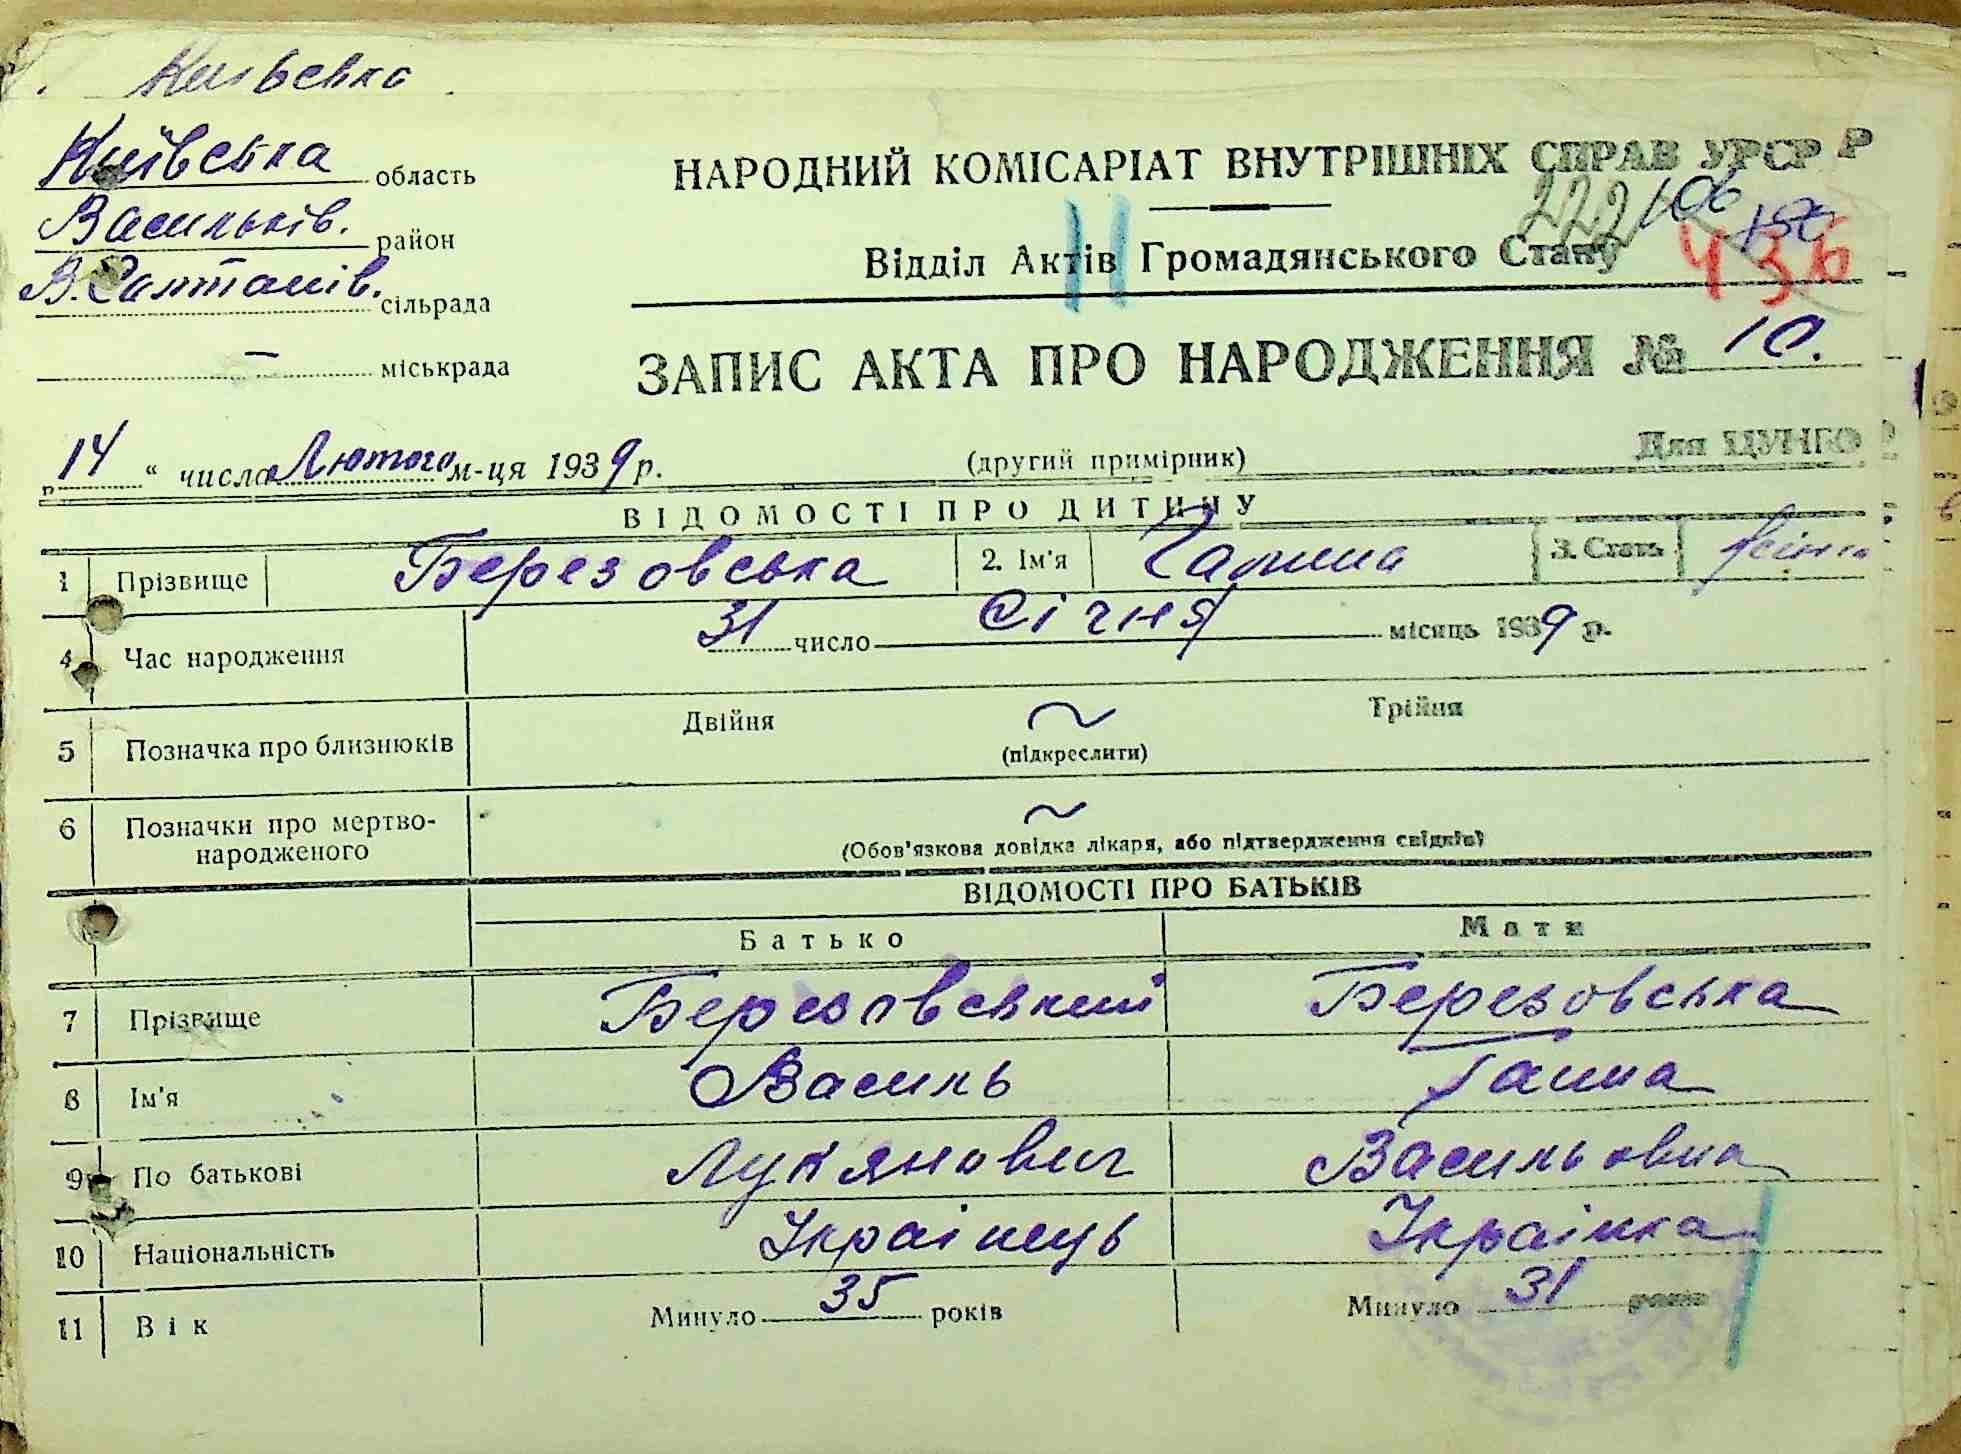 Київська
Київська область
Васильків. район
В. Солтанів. сільрада
— міськрада
НАРОДНИЙ КОМІСАРІАТ ВНУТРІШНІХ СПРАВ УРСР Р
222 106
436
Відділ Актів Громадянського Стану
11
ЗАПИС АКТА ПРО НАРОДЖЕННЯ № 10.
„ 14 “ числа Лютого м-ця 1939 р.
(другий примірник)
Для ЦУНГО
ВІДОМОСТІ ПРО ДИТИНУ
1 Прізвище Березовська 2. Ім'я Галина 3. Стать
4 Час народження 31 число Січня місяць 1939 р.
5 Позначка про близнюків Двійня ~ Трійня
(підкреслити)
6 Позначки про мертво-
народженого ~
(Обов'язкова довідка лікаря, або підтвердження свідків)
ВІДОМОСТІ ПРО БАТЬКІВ
Батько Мати
7 Прізвище Березовський Березовська
8 Ім'я Василь Ганна
9 По батькові Лук'янович Васильовна
10 Національність Українець Українка
11 Вік Минуло 35 років Минуло 31 років